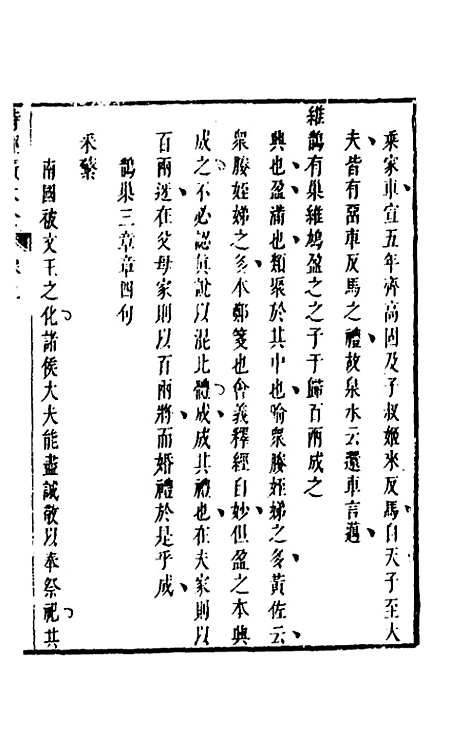 乘家車宣五年齊高固及子叔姬來反馬自天子至大
夫皆有畱車反馬之禮故泉水云還車言邁
維鵲有巢維鳩盈之之子于歸百兩成之
興也盈滿也類聚於其中也喻衆媵姪娣之多黃佐云
衆媵姪娣之多本鄭箋也會義釋經自妙但盈之本興
成之不必認眞說以混比體成成其禮也在夫家則以
百兩迓在父母家則以百兩將而婚禮於是乎成
鵲巢三章章四句
采蘩
南國被文王之化諸侯大夫能盡誠敬以奉祭祀其